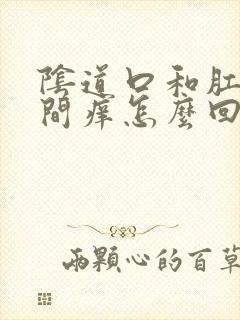 陰道口和肛
間癢怎麼回
兩顆心的百草